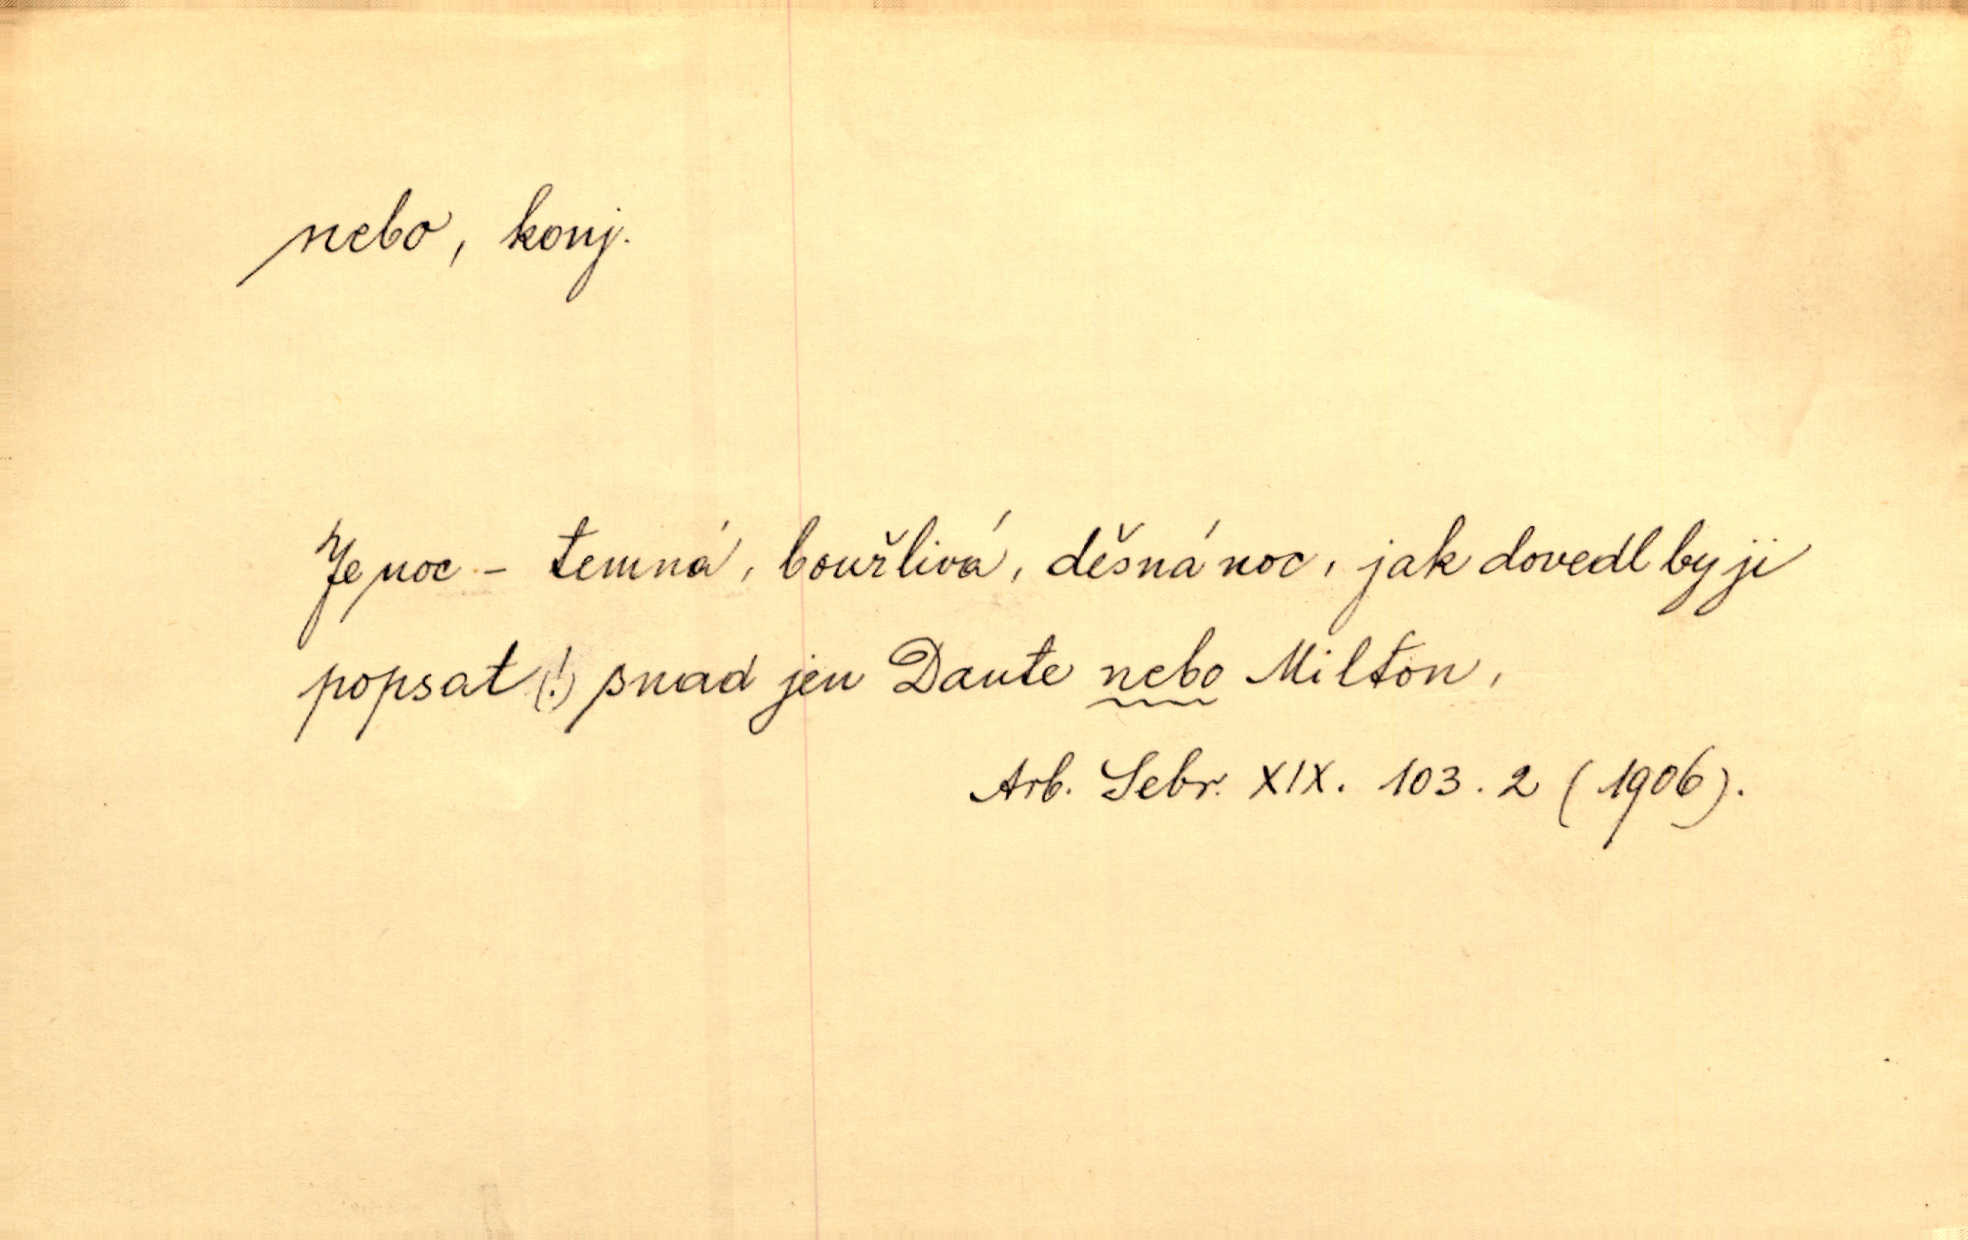 nebo, konj.
Je noc - temná, bouřlivá, děsná noc, jak dovedl by ji
popsat (!) snad jen Dante nebo Milton,
Arb. Sebr. XIX. 103. 2 (1906).